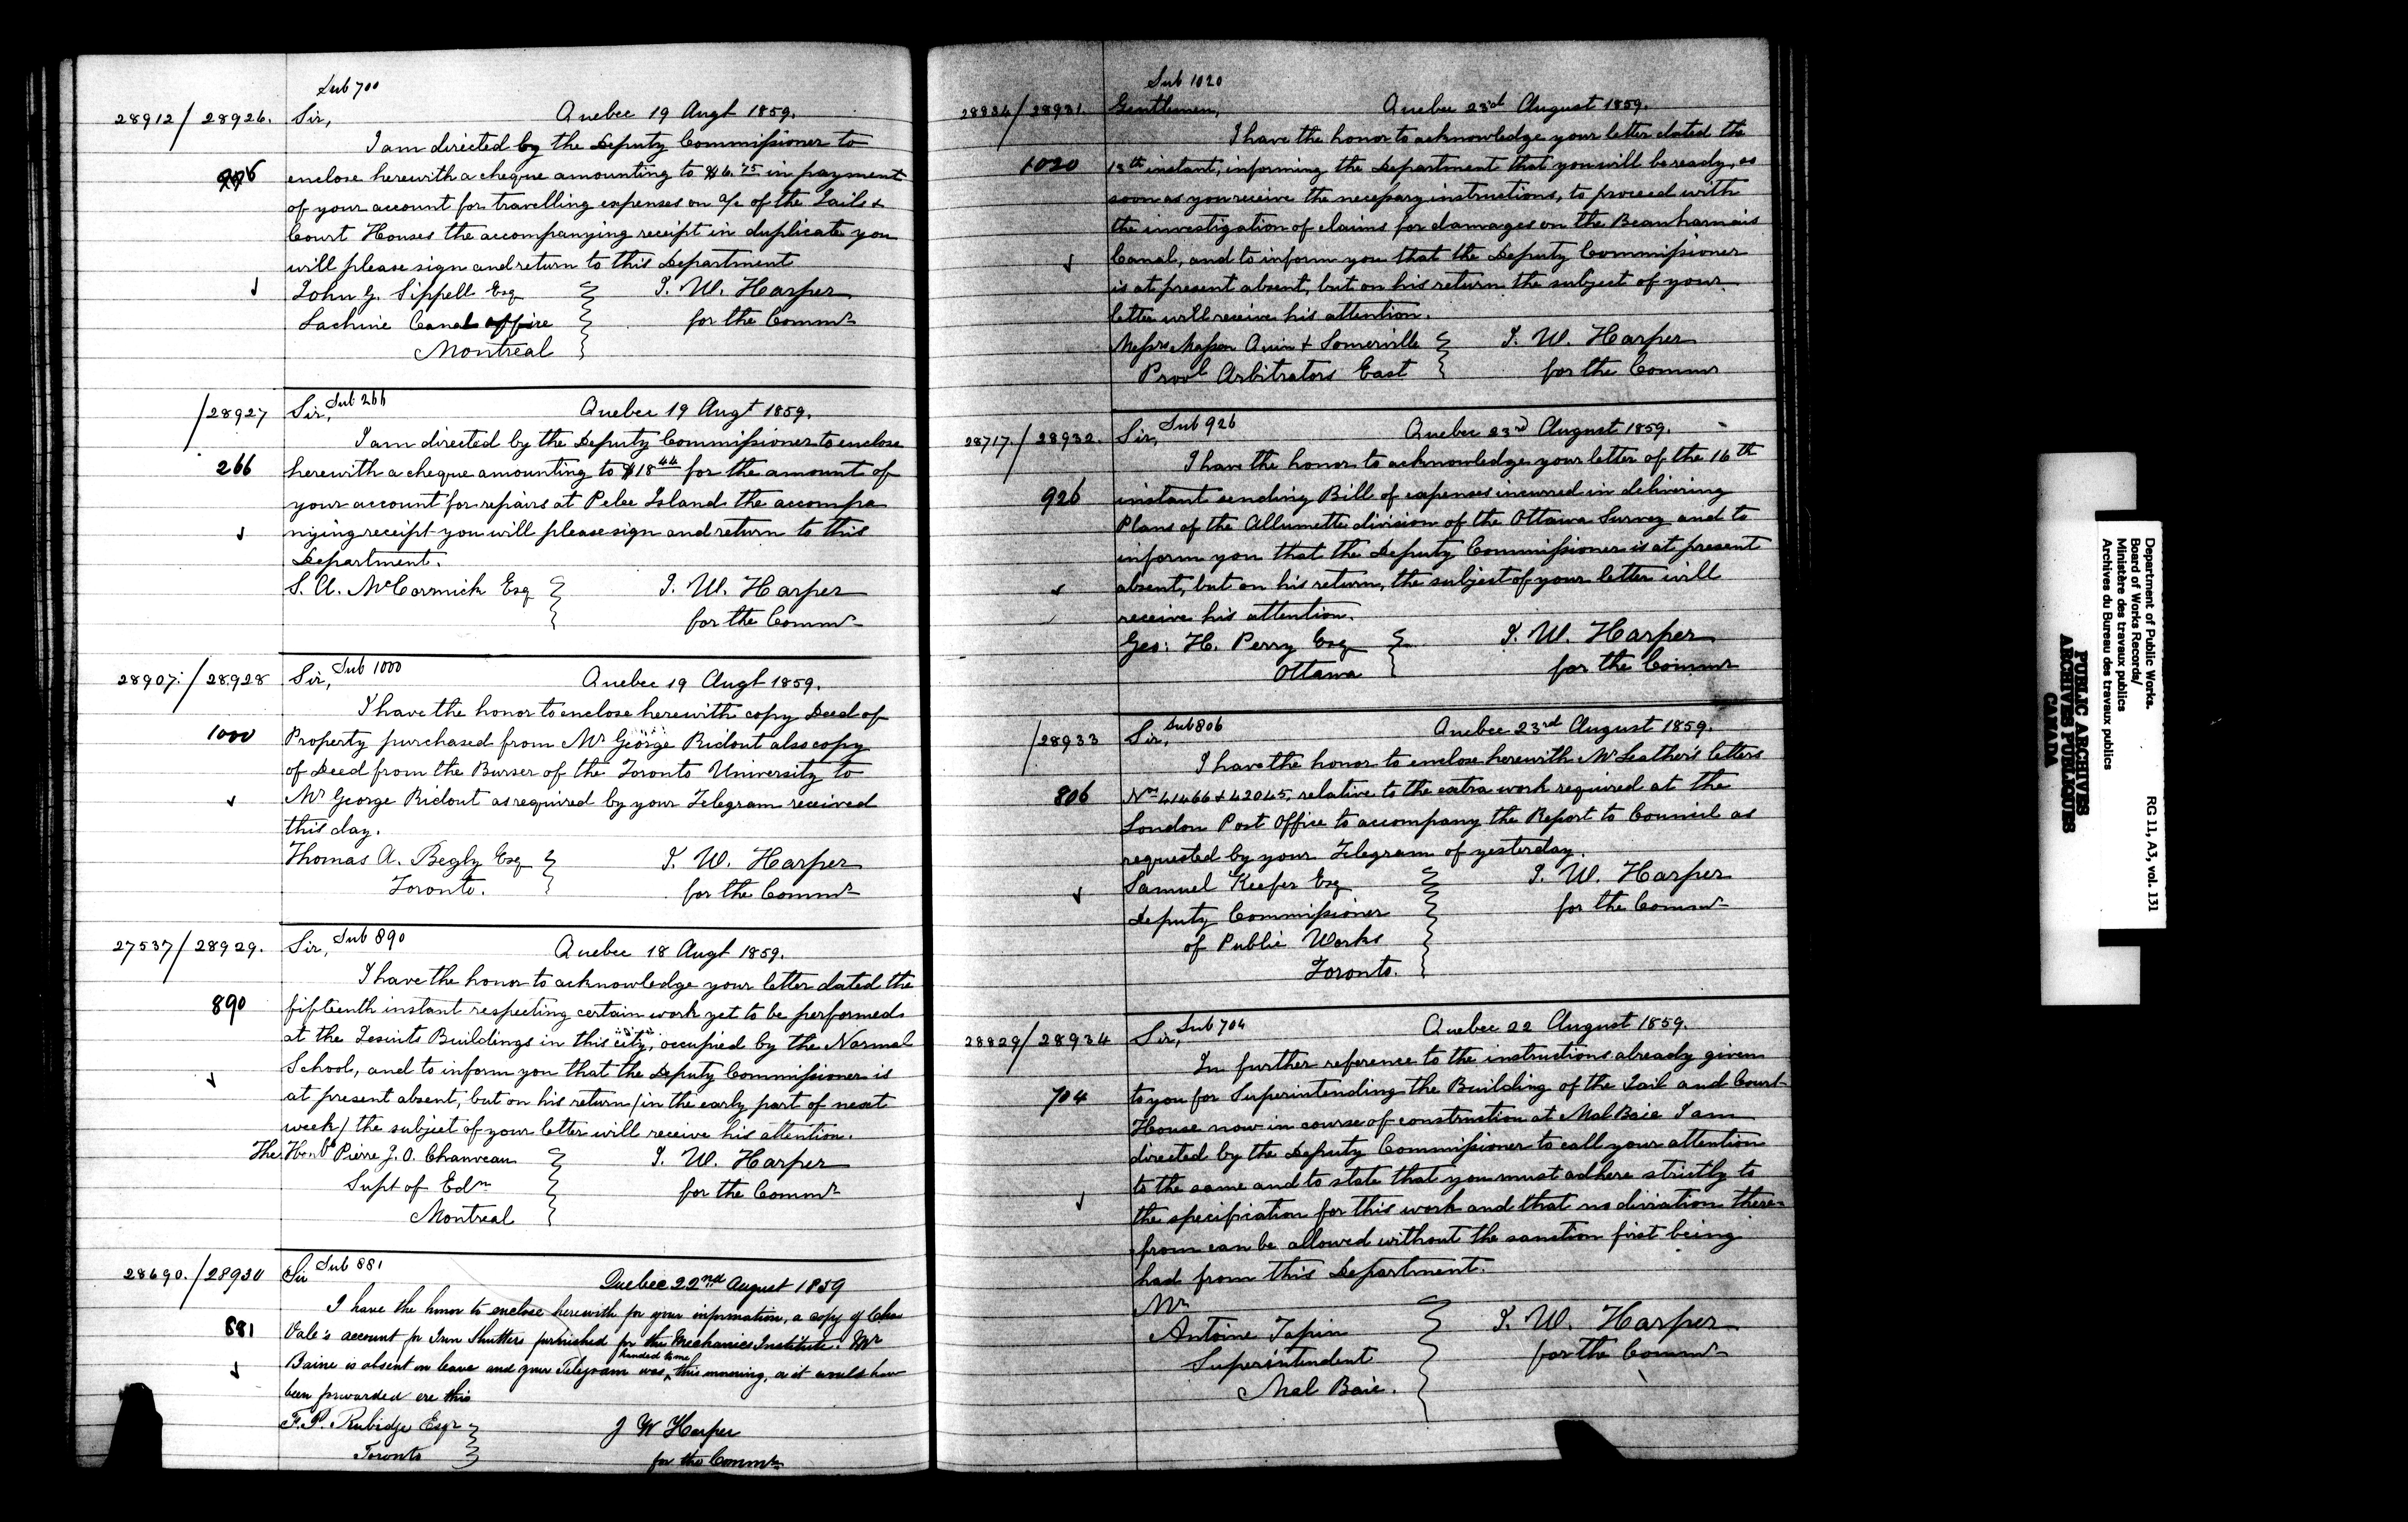 Sub 700
28912/28926. Sir, Quebec 19 Augt 1859.
I am directed by the Deputy Commissioner to
enclose herewith a cheque amounting to $6.75 in payment
of your account for travelling expenses on a/c of the Jails &
Court Houses the accompanying receipt in duplicate you
will please sign and return to this Department
John G. Sippell Esq J. W. Harper
Lachine Canal office for the Commr
Montreal
/28927 Sir, Sub 266 Quebec 19 Augt 1859.
I am directed by the Deputy Commissioner to enclose
266 herewith a cheque amounting to $18 44 for the amount of
your account for repairs at Pelee Island the accompa
nying receipt you will please sign and return to this
Department.
S. A. McCormick Esq J. W. Harper
for the Commr
28907./28928 Sir, Sub 1000 Quebec 19 Augt 1859.
I have the honor to enclose herewith copy Deed of
1000 Property purchased from Mr George Ridout also copy
of Deed from the Burser of the Toronto University to
Mr George Ridout as required by your Telegram received
this day.
Thomas A. Begly Esq J. W. Harper
Toronto. for the Commr
27537/28929. Sir, Sub 890 Quebec 18 Augt 1859.
I have the honor to acknowledge your letter dated the
890 fifteenth instant respecting certain work yet to be performed
at the Jesuits Buildings in this city, occupied by the Normal
School, and to inform you that the Deputy Commissioner is
at present absent, but on his return (in the early part of next
week) the subject of your letter will receive his attention.
The Honble Pierre J. O. Chauveau J. W. Harper
Supt of Edn for the Commr
Montreal
28690./28930 Sir Sub 881 Quebec 22nd August 1859
I have the honor to enclose herewith for your information, a copy of Chas
881 Vale's account for Iron Shutters furnished for the Mechanics Institute. Mr
Baine is absent on leave and your Telegram was handed to me this morning, or it would have
been forwarded ere this
F. P. Rubidge Esqr J W Harper
Toronto for the Commr
Sub 1020
28934/28931. Gentlemen, Quebec 23rd August 1859.
I have the honor to acknowledge your letter dated the
1020 18th instant, informing the Department that you will be ready, as
soon as you receive the necessary instructions, to proceed with
the investigation of claims for damages on the Beauharnais
Canal, and to inform you that the Deputy Commissioner
is at present absent, but on his return the subject of your
letter will receive his attention.
Messrs Masson Quin & Somerville J. W. Harper
Provl Arbitrators East for the Commr
28717./28932. Sir, Sub 926 Quebec 23rd August 1859.
I have the honor to acknowledge your letter of the 16th
926 instant sending Bill of expenses incurred in delivering
Plans of the Allumette division of the Ottawa Survey and to
inform you that the Deputy Commissioner is at present
absent, but on his return, the subject of your letter will
receive his attention.
Geo: H. Perry Esq J. W. Harper
Ottawa for the Commr
/28933 Sir, Sub 806 Quebec 23rd August 1859.
I have the honor to enclose herewith Mr Leather's letters
806 Nos 41466 & 42045, relative to the extra work required at the
London Post Office to accompany the Report to Council as
requested by your Telegram of yesterday.
Samuel Keefer Esq J. W. Harper
Deputy Commissioner for the Commr
of Public Works
Toronto.
28829/28934 Sir, Sub 704 Quebec 22 August 1859.
In further reference to the instructions already given
704 to you for Superintending the Building of the Jail and Court
House now in course of construction at Mal Baie I am
directed by the Deputy Commissioner to call your attention
to the same and to state that you must adhere strictly to
the specification for this work and that no diviation there-
from can be allowed without the sanction first being
had from this Department.
Mr
Antoine Tapin J. W. Harper
Superintendent for the Commr
Mal Baie.
Department of Public Works.
Board of Works Records/
Ministère des travaux publics
Archives du Bureau des travaux publics
RG 11, A3, vol. 131
PUBLIC ARCHIVES
ARCHIVES PUBLIQUES
CANADA